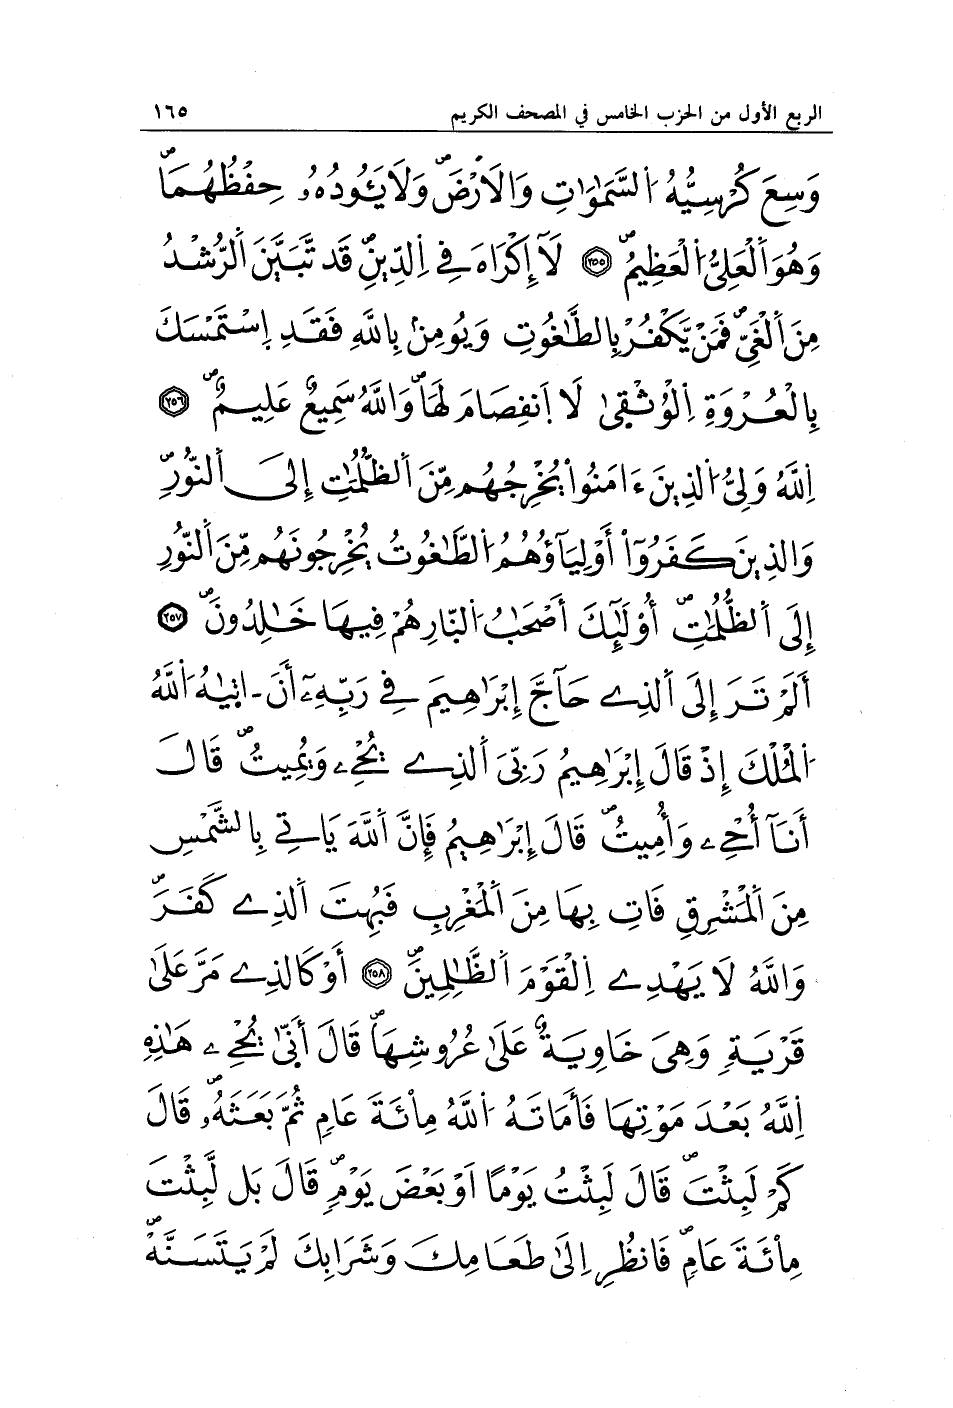 الربع الأول من الحزب الخامس في المصحف الكريم ١٦٥
وَسِعَ كُرْسِيُّهُ اُ۬لسَّمَٰوَٰتِ وَالَارْضَۖ وَلَا يَـُٔودُهُۥ حِفْظُهُمَاۖ
وَهُوَ اَ۬لْعَلِيُّ اُ۬لْعَظِيمُۖ ٢٥٥ لَآ إِكْرَاهَ فِے اِ۬لدِّينِۖ قَد تَّبَيَّنَ اَ۬لرُّشْدُ
مِنَ اَ۬لْغَيِّۖ فَمَنْ يَّكْفُرْ بِالطَّٰغُوتِ وَيُومِنۢ بِاللَّهِ فَقَدِ اِ۪سْتَمْسَكَ
بِالْعُرْوَةِ اِ۬لْوُثْقىٰ لَا اَ۪نفِصَامَ لَهَاۖ وَاللَّهُ سَمِيعٌ عَلِيمٌۖ ٢٥٦
اِ۬للَّهُ وَلِيُّ اُ۬لذِينَ ءَامَنُواْ يُخْرِجُهُم مِّنَ اَ۬لظُّلُمَٰتِ إِلَى اَ۬لنُّورِۖ
وَالذِينَ كَفَرُوٓاْ أَوْلِيَآؤُهُمُ اُ۬لطَّٰغُوتُ يُخْرِجُونَهُم مِّنَ اَ۬لنُّورِ
إِلَى اَ۬لظُّلُمَٰتِۖ أُوْلَٰٓئِكَ أَصْحَٰبُ اُ۬لنّارِ هُمْ فِيهَا خَٰلِدُونَۖ ٢٥٧
أَلَمْ تَرَ إِلَى اَ۬لذِے حَآجَّ إِبْرَٰهِيمَ فِے رَبِّهِۦٓ أَنَ ـ ات۪يٰهُ اُ۬للَّهُ
اُ۬لْمُلْكَ إِذْ قَالَ إِبْرَٰهِيمُ رَبِّيَ اَ۬لذِے يُحْيِۦ وَيُمِيتُۖ قَالَ
أَنَآ أُحْيِۦ وَأُمِيتُۖ قَالَ إِبْرَٰهِيمُ فَإِنَّ اَ۬للَّهَ يَاتِے بِالشَّمْسِ
مِنَ اَ۬لْمَشْرِقِ فَاتِ بِهَا مِنَ اَ۬لْمَغْرِبِ فَبُهِتَ اَ۬لذِے كَفَرَۖ
وَاللَّهُ لَا يَهْدِے اِ۬لْقَوْمَ اَ۬لظَّٰلِمِينَۖ ٢٥٨ أَوْ كَالذِے مَرَّ عَلَىٰ
قَرْيَةٍ وَهِيَ خَاوِيَةٌ عَلَىٰ عُرُوشِهَاۖ قَالَ أَنّ۪ىٰ يُحْيِۦ هَٰذِهِ
اِ۬للَّهُ بَعْدَ مَوْتِهَا فَأَمَاتَهُ اُ۬للَّهُ مِاْئَةَ عَامٖ ثُمَّ بَعَثَهُۥۖ قَالَ
كَمْ لَبِثْتَۖ قَالَ لَبِثْتُ يَوْمًا اَوْ بَعْضَ يَوْمٖۖ قَالَ بَل لَّبِثْتَ
مِاْئَةَ عَامٖۖ فَانظُرِ اِلَىٰ طَعَامِكَ وَشَرَابِكَ لَمْ يَتَسَنَّهْۖ